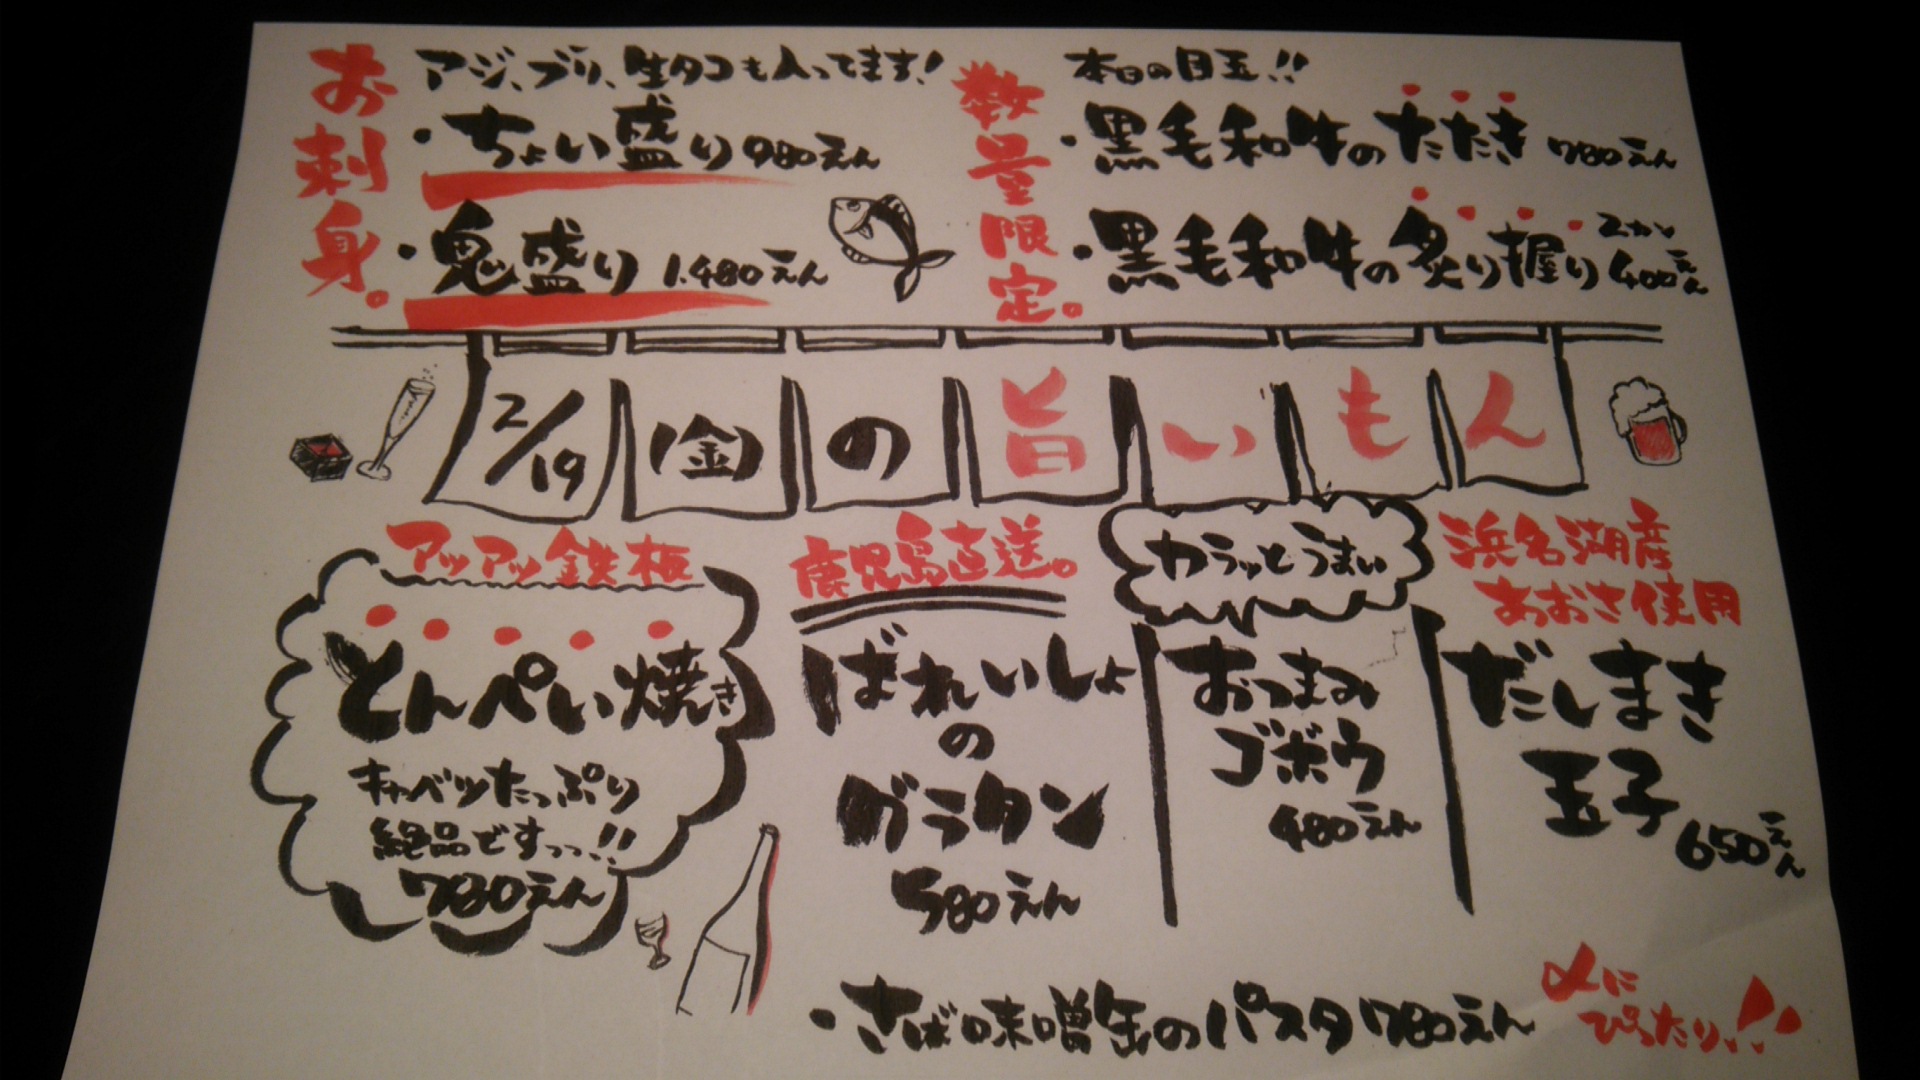 お刺身。
アジ、ブリ、生タコも入ってます!
・ちょい盛り 980えん
・鬼盛り 1.480えん
数量限定。
本日の目玉!!
・黒毛和牛のたたき 780えん
・黒毛和牛の炙り握り 2カン 400えん
2/19 (金) の旨いもん
アッアッ鉄板
とんぺい焼き
キャベツたっぷり
絶品ですっっ!!
780えん
鹿児島直送。
ばれいしょ
の
グラタン
580えん
カラッとうまい
おつまみ
ゴボウ
480えん
浜名湖産
あおさ使用
だしまき
玉子
650えん
・さば味噌缶のパスタ 780えん
〆に
ぴったり、!!